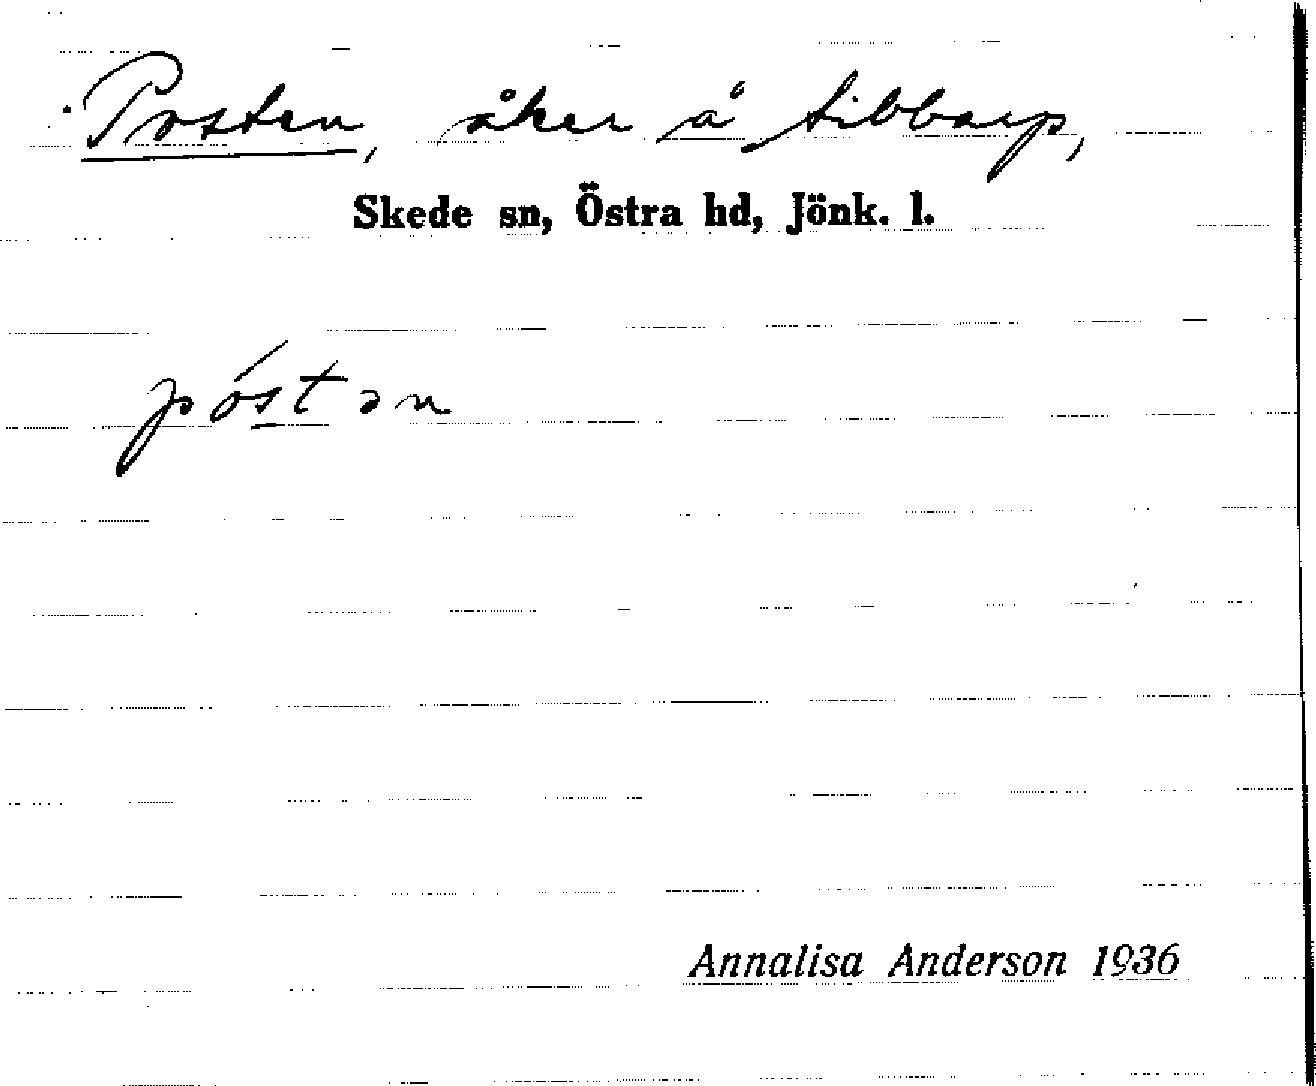 Posten, åker å Sibbarp,
Skede sn, Östra hd, Jönk. l.
póstən
Annalisa Anderson 1936